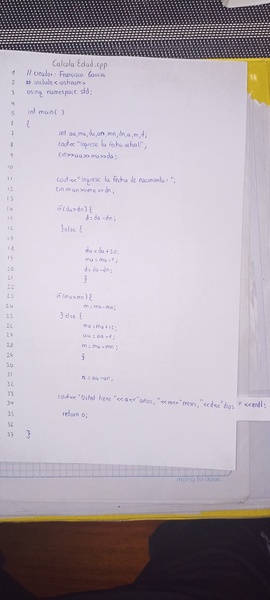 Calcula Edad.cpp
1 // creador: Francisco Garcia
2 # include <iostream>
3 using namespace std;
4
5 int main( )
6 {
7 int aa, ma, da, an, mn, dn, a, m, d;
8 cout<<"Ingrese la fecha actual:";
9 cin>>aa>>ma>>da;
10
11 cout<<"Ingrese la fecha de nacimiento: ";
12 cin>>an>>mn>>dn;
13
14 if(da>dn){
15 d=da-dn;
16 }else {
17
18 da=da+30;
19 ma=ma-1;
20 d=da-dn;
21 }
22
23 if(ma>mn){
24 m=ma-mn;
25 }else {
26 ma=ma+12;
27 aa=aa-1;
28 m=ma-mn;
29 }
30
31 a=aa-an;
32
33
34 cout<<"Usted tiene "<<a<<"años, "<<m<<"meses, "<<d<<"dias"<<endl;
35 return 0;
36
37 }